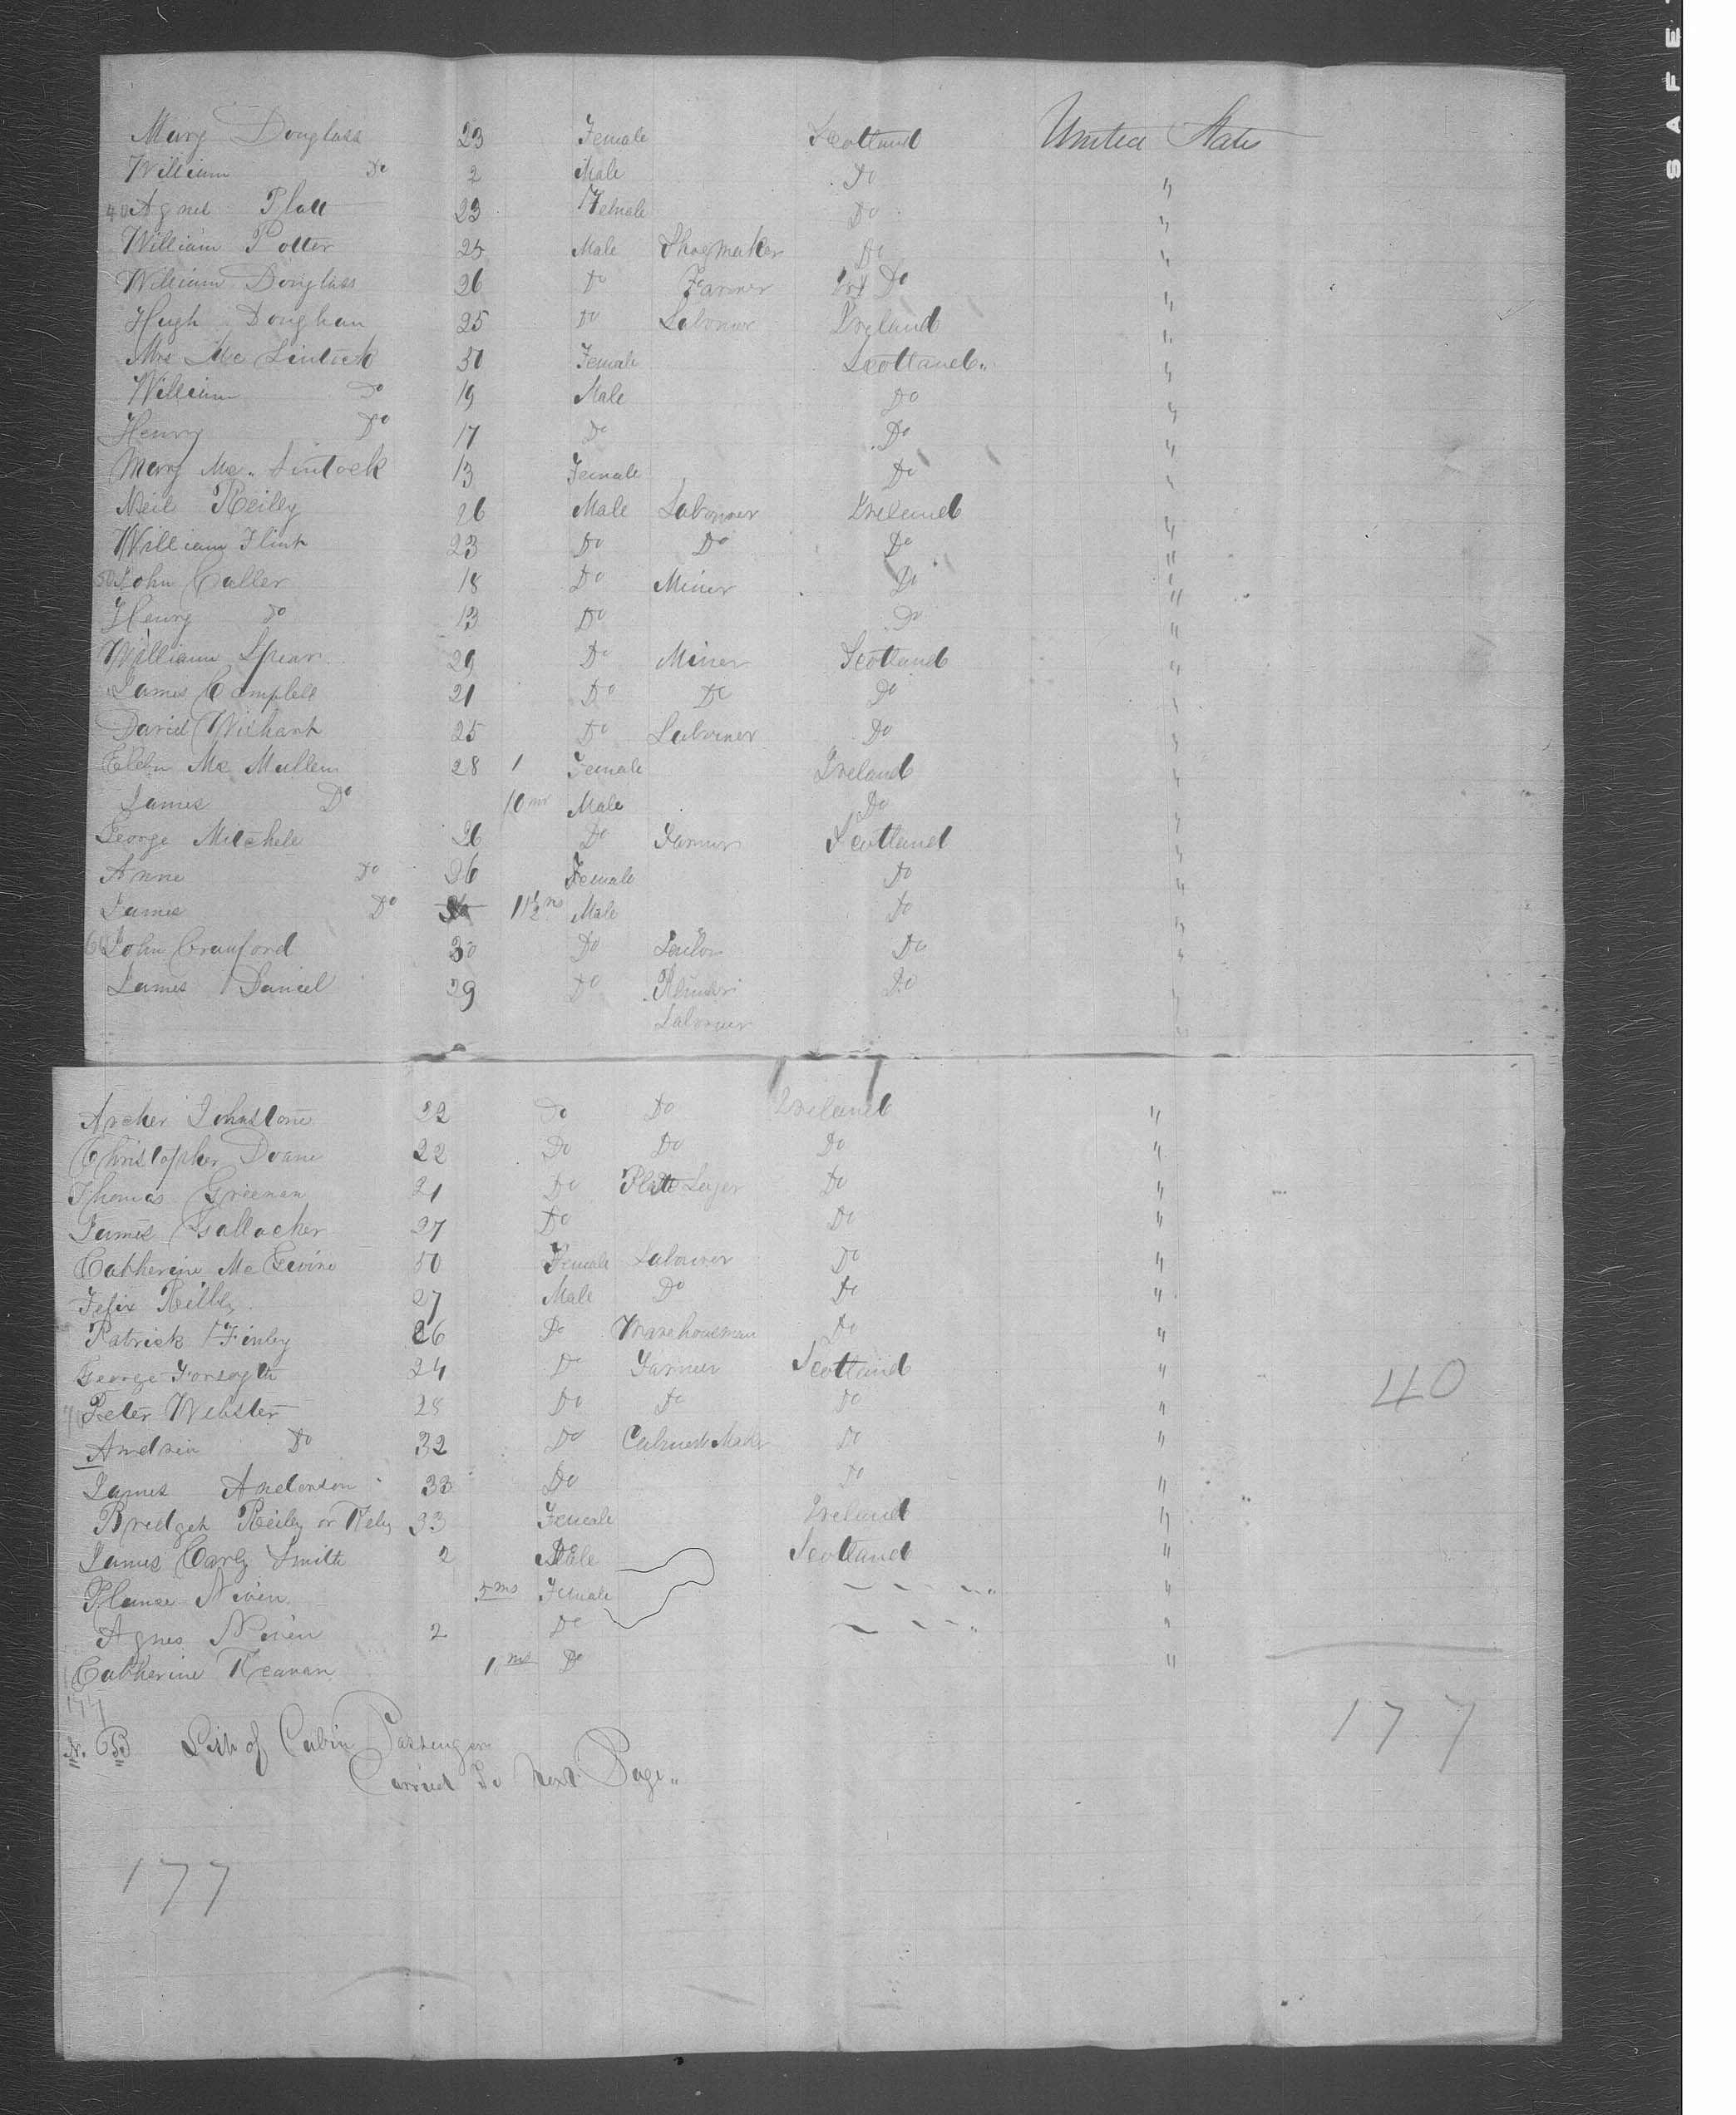 SAFE
Mary Douglass 23 Female Scotland United States
William Do 2 Male Do "
40 Agnes Platt 23 Female Do "
William Potter 25 Male Shoemaker Do "
William Douglass 26 Do Farmer Do "
Hugh Doughan 25 Do Labourer Ireland "
Mrs Mc Lintock 50 Female Scotland "
William Do 19 Male Do "
Henry Do 17 Do Do "
Mary Mc Lintock 13 Female Do "
Neil Reilly 26 Male Labourer Ireland "
William Flint 23 Do Do Do "
50 John Caller 18 Do Miner Do "
Henry Do 13 Do Do "
William Spear 29 Do Miner Scotland "
James Campbell 21 Do Do Do "
David Wishart 25 Do Labourer Do "
Ellen Mc Mullen 28 1 Female Ireland "
James Do 10 ms Male Do "
George Mitchell 26 Do Farmer Scotland "
Anne Do 26 Female Do "
James Do 1 1/2 Male Do "
John Crauford 30 Do Do "
James Daniel 29 Do Do "
Labourer
Archer Johnstone 22 Do Do Ireland "
Christopher Doane 22 Do Do Do "
Thomas Greenan 21 Do Plate Layer Do "
James Gallacher 27 Do Do "
Catherine Mc Givine 50 Female Labourer Do "
Felix Reilly 27 Male Do Do "
Patrick Finley 26 Do Warehouseman Do "
George Forsyth 24 Do Farmer Scotland " 40
70 Peter Webster 28 Do Do Do "
Andrew Do 32 Do Cabinet Maker Do "
James Anderson 33 Do Do "
Bridget Reily or Kely 33 Female Ireland "
James Carly Smith 2 Male Scotland "
Niven 5 ms Female "
Agnes Niven 2 Do "
Catherine Keanan 1 ms Do "
177
177
N. B List of Cabin Passengers
Carried To Next Page "
177